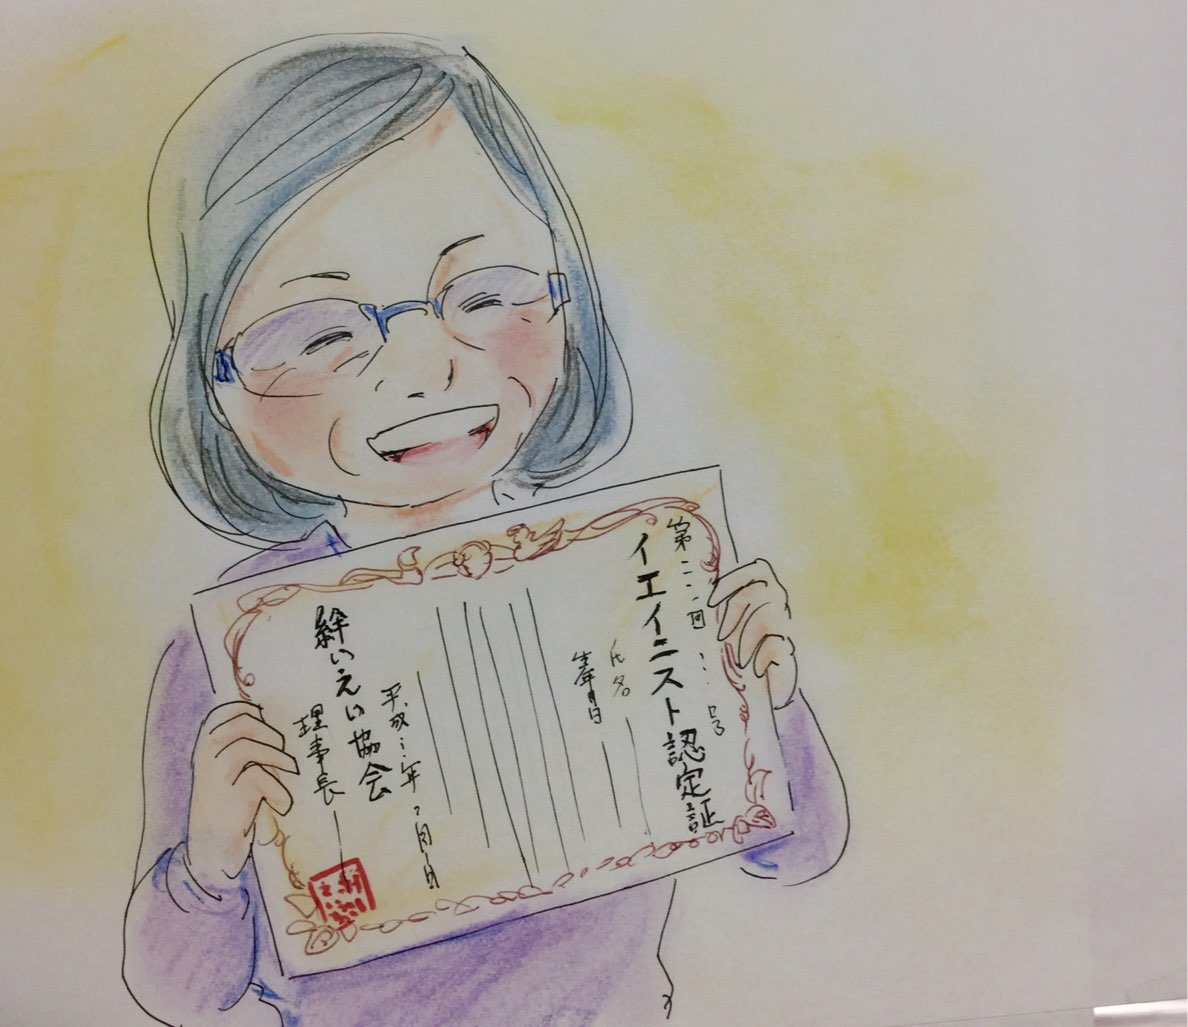 第二…回 … 号
イエイニスト認定証
氏名
生年月日
平成…年?月日
絆いえい協会
理事長